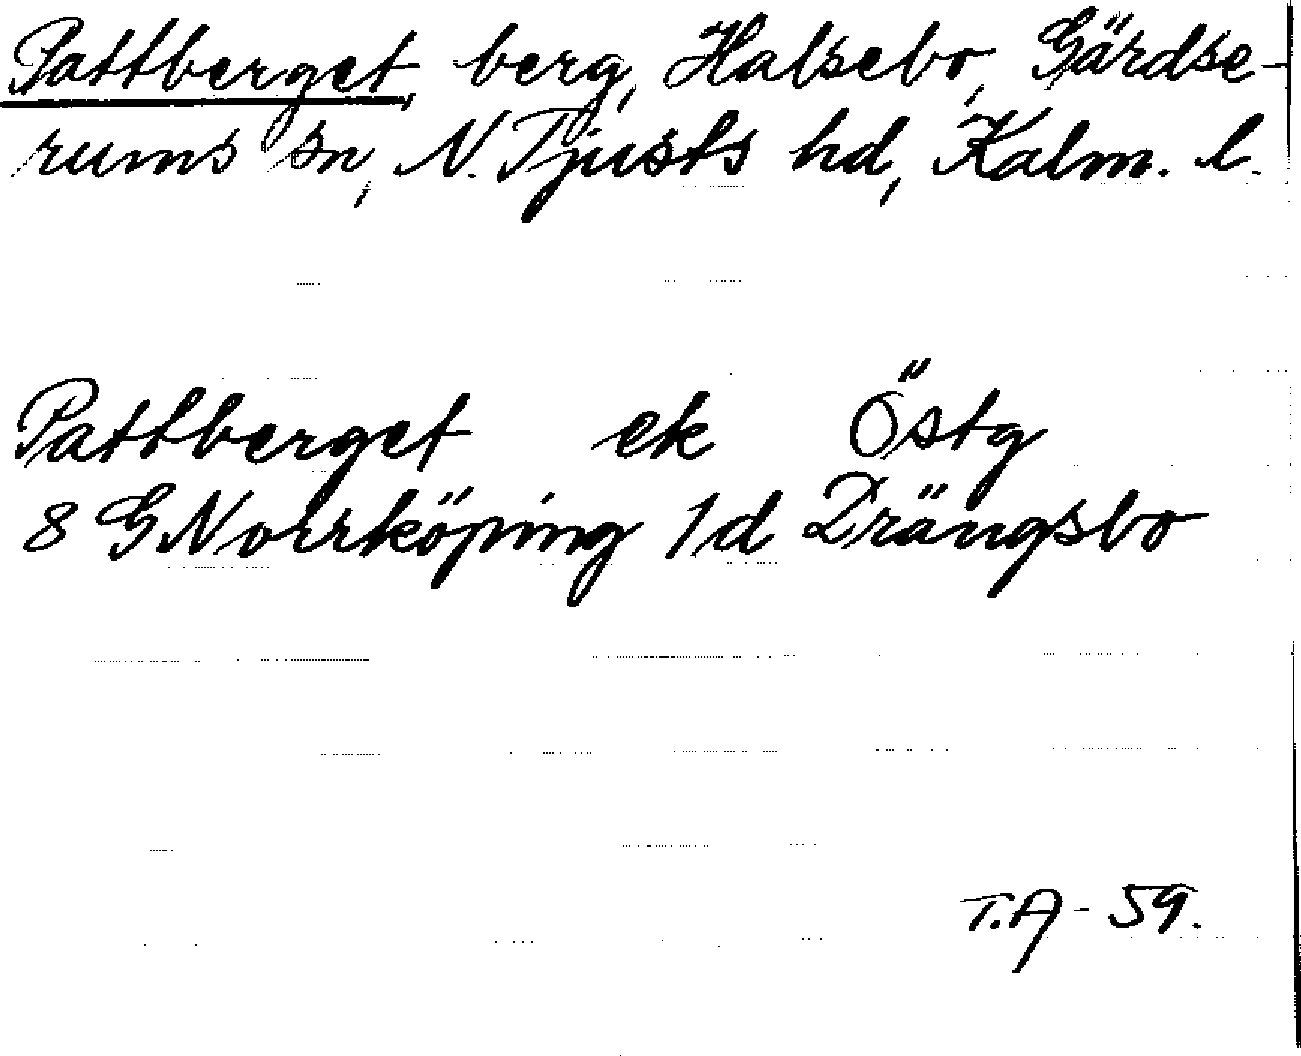 Pattberget, berg, Halsebo, Gärdse-
rums sn, N. Tjusts hd, Kalm. l.
Pattberget ek Östg
8 G Norrköping 1d Drängsbo
T.A - 59.